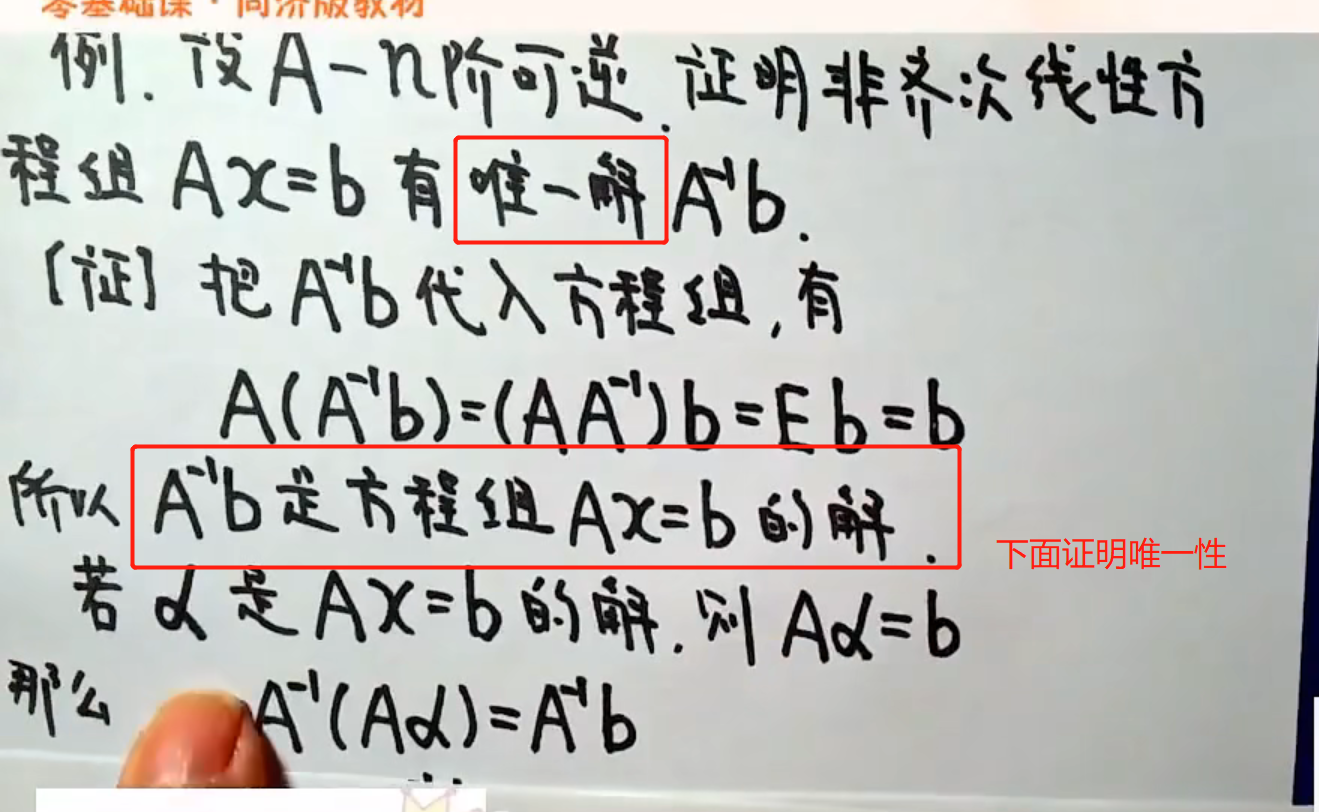 零基础课·同济版教材
例. 设A-n阶可逆. 证明非齐次线性方
程组 Ax=b 有 唯一解 A⁻¹b.
[证] 把 A⁻¹b 代入方程组, 有
A(A⁻¹b)=(AA⁻¹)b=Eb=b
所以 A⁻¹b 是方程组 Ax=b 的解.
下面证明唯一性
若 α 是 Ax=b 的解. 则 Aα=b
那么 A⁻¹(Aα)=A⁻¹b